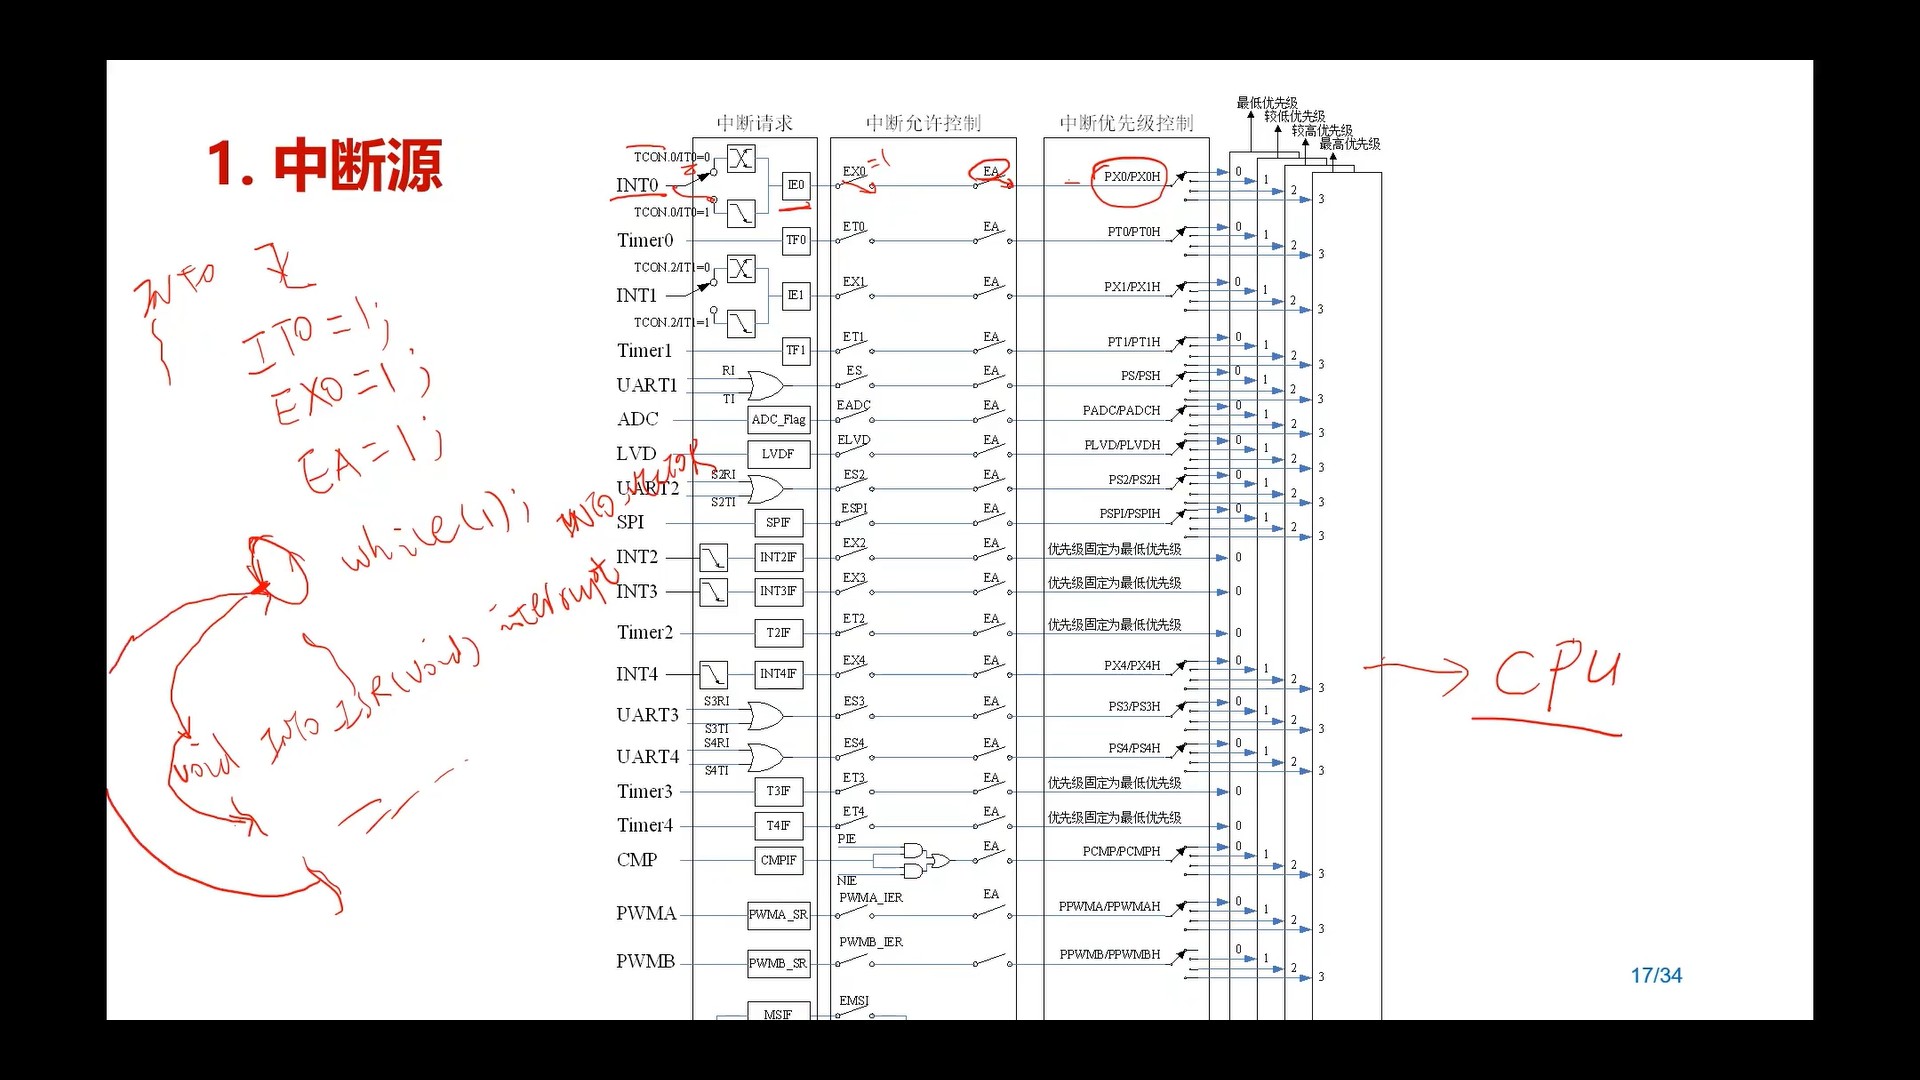 1. 中断源
中断请求
中断允许控制
中断优先级控制
最低优先级
较低优先级
较高优先级
最高优先级
TCON.0/IT0=0
INT0
TCON.0/IT0=1
IE0
EX0
=1
EA
PX0/PX0H
0
1
2
3
Timer0
TF0
ET0
EA
PT0/PT0H
0
1
2
3
TCON.2/IT1=0
INT1
TCON.2/IT1=1
IE1
EX1
EA
PX1/PX1H
0
1
2
3
Timer1
TF1
ET1
EA
PT1/PT1H
0
1
2
3
UART1
RI
TI
ES
EA
PS/PSH
0
1
2
3
ADC
ADC_Flag
EADC
EA
PADC/PADCH
0
1
2
3
LVD
LVDF
ELVD
EA
PLVD/PLVDH
0
1
2
3
UART2
S2RI
S2TI
ES2
EA
PS2/PS2H
0
1
2
3
SPI
SPIF
ESPI
EA
PSPI/PSPIH
0
1
2
3
INT2
INT2IF
EX2
EA
优先级固定为最低优先级
0
INT3
INT3IF
EX3
EA
优先级固定为最低优先级
0
Timer2
T2IF
ET2
EA
优先级固定为最低优先级
0
INT4
INT4IF
EX4
EA
PX4/PX4H
0
1
2
3
UART3
S3RI
S3TI
ES3
EA
PS3/PS3H
0
1
2
3
UART4
S4RI
S4TI
ES4
EA
PS4/PS4H
0
1
2
3
Timer3
T3IF
ET3
EA
优先级固定为最低优先级
0
Timer4
T4IF
ET4
EA
优先级固定为最低优先级
0
CMP
CMPIF
PIE
NIE
EA
PCMP/PCMPH
0
1
2
3
PWMA
PWMA_SR
PWMA_IER
EA
PPWMA/PPWMAH
0
1
2
3
PWMB
PWMB_SR
PWMB_IER
PPWMB/PPWMBH
0
1
2
3
MSIF
EMSI
INT0
IT0=1;
EX0=1;
EA=1;
while(1);
void INT0_ISR(void) interrupt INT0_VECTOR
CPU
17/34